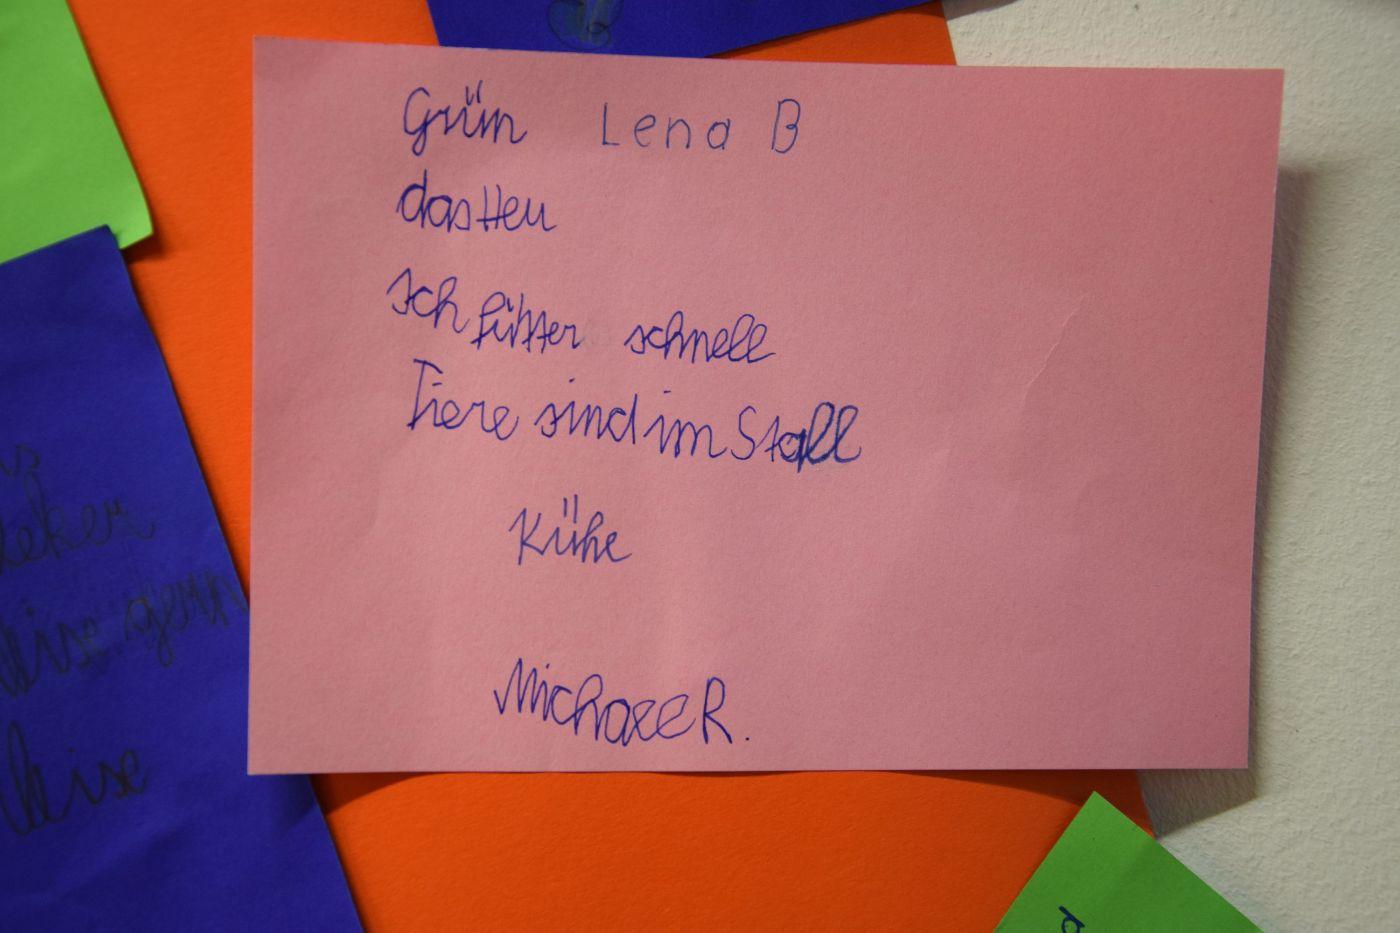 Grün Lena B
das Heu
Ich fütter schnell
Tiere sind im Stall
Kühe
Michael R.
leise gern
leise